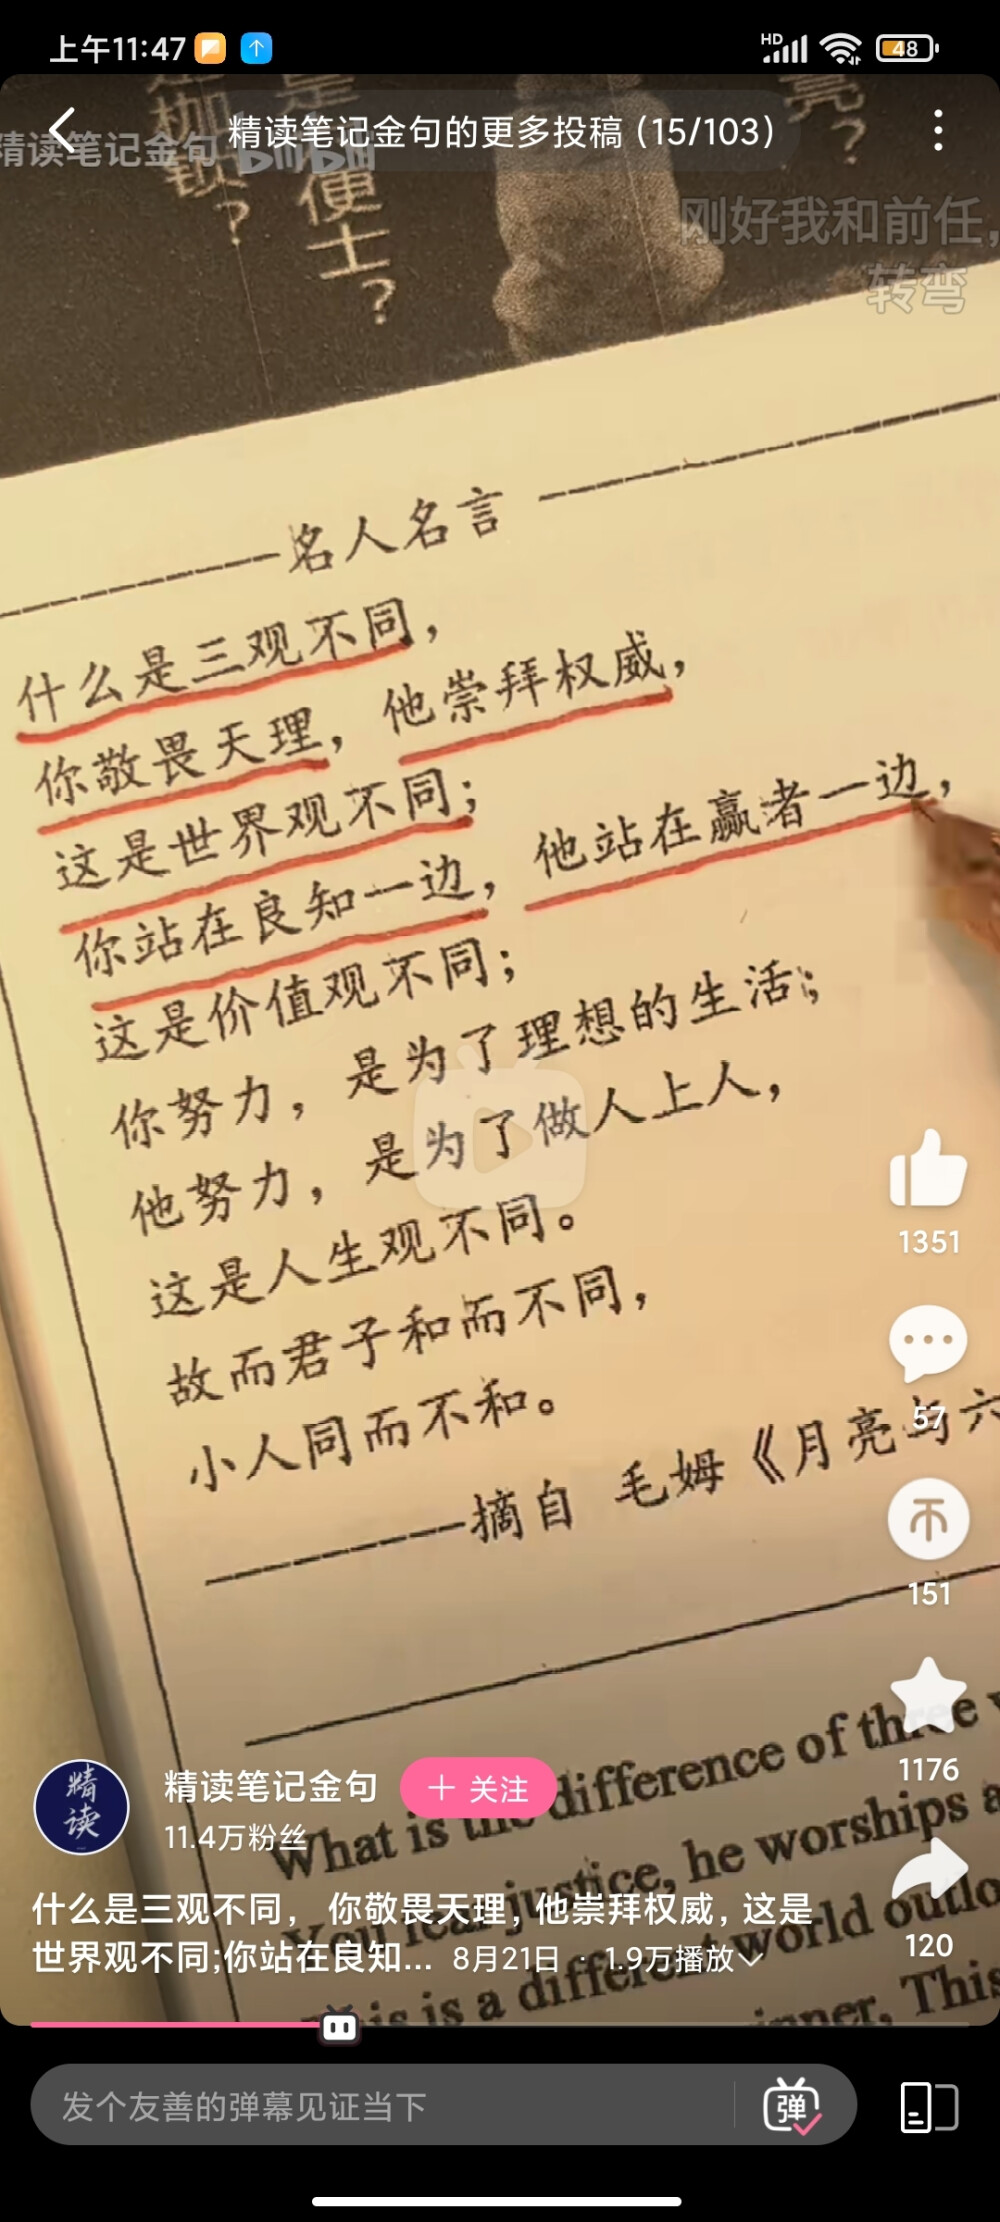 上午11:47
HD
48
精读笔记金句的更多投稿 (15/103)
精读笔记金句
bilibili
枷
是
便士?
亮?
刚好我和前任,
转弯
名人名言
什么是三观不同,
你敬畏天理, 他崇拜权威,
这是世界观不同;
你站在良知一边, 他站在赢者一边,
这是价值观不同;
你努力, 是为了理想的生活;
他努力, 是为了做人上人,
这是人生观不同。
故而君子和而不同,
小人同而不和。
摘自 毛姆《月亮与六
1351
57
151
1176
120
What is the difference of three
You fear justice, he worships a
is is a different world outlo
inner, This
精读
精读笔记金句
+ 关注
11.4万粉丝
什么是三观不同, 你敬畏天理, 他崇拜权威, 这是
世界观不同;你站在良知... 8月21日 · 1.9万播放
发个友善的弹幕见证当下
弹